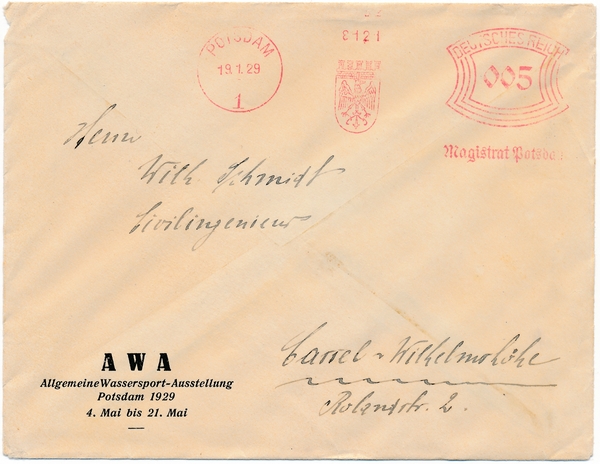 POTSDAM
19.1.29
1
8121
DEUTSCHES REICH
005
Magistrat Potsda
Herrn
Wilh. Schmidt
Civilingenieur
Cassel-Wilhelmshöhe
Rolandstr. 2.
AWA
Allgemeine Wassersport-Ausstellung
Potsdam 1929
4. Mai bis 21. Mai